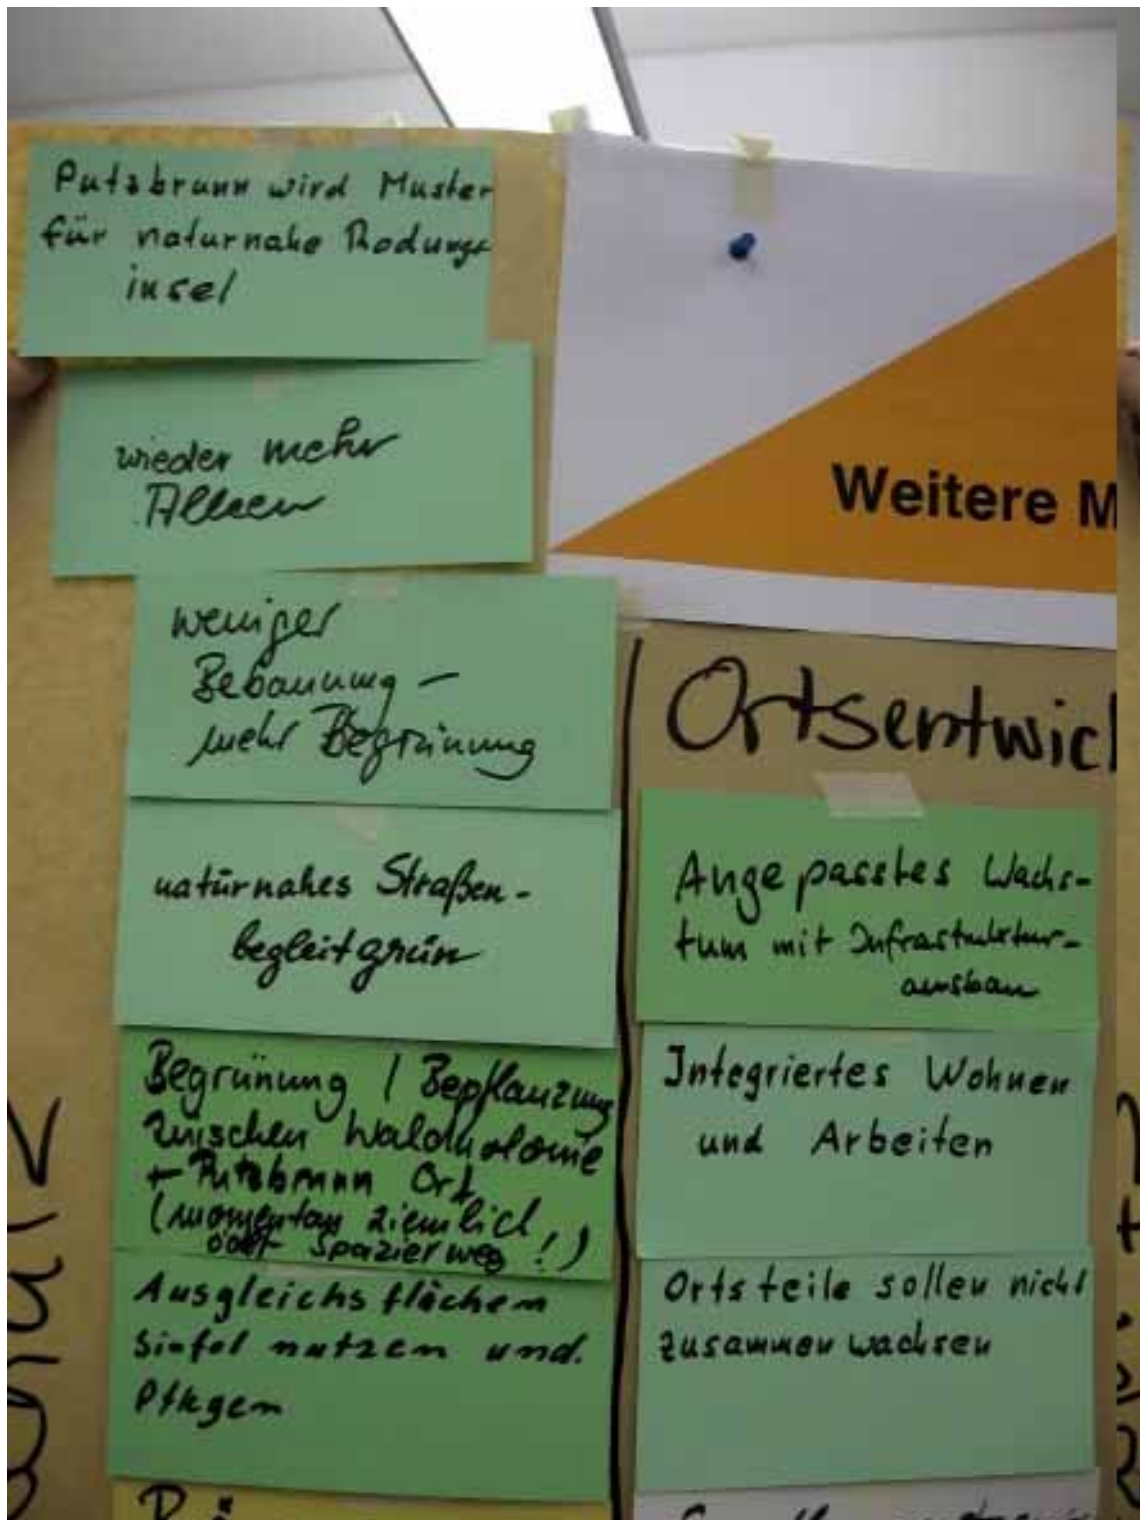 Putzbrunn wird Muster
für naturnahe Rodungs
insel
wieder mehr
Alleen
weniger
Bebauung –
mehr Begrünung
naturnahes Straßen-
begleitgrün
Begrünung / Bepflanzung
zwischen Waldkolonie
+ Putzbrunn Ort
(momentan ziemlich
öder Spazierweg!)
Ausgleichsflächen
sinfol nutzen und.
Pflegen
Weitere M
Ortsentwic
Angepasstes Wachs-
tum mit Infrastruktur-
ausbau
Integriertes Wohnen
und Arbeiten
Ortsteile sollen nicht
zusammenwachsen